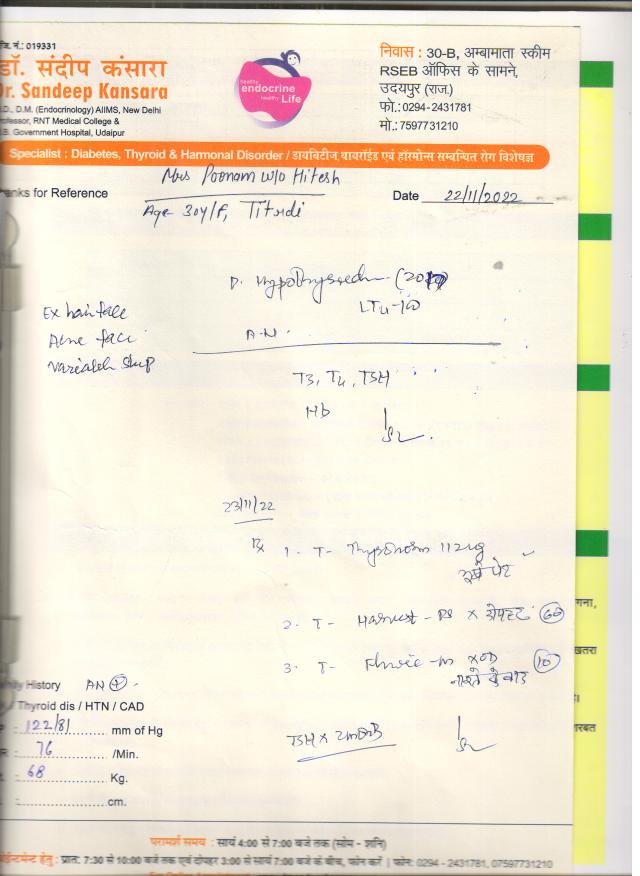 जि. नं.: 019331
डॉ. संदीप कंसारा
Dr. Sandeep Kansara
D., D.M. (Endocrinology) AIIMS, New Delhi
ofessor, RNT Medical College &
.B. Government Hospital, Udaipur
healthy
endocrine
healthy Life
निवास : 30-B, अम्बामाता स्कीम
RSEB ऑफिस के सामने,
उदयपुर (राज.)
फो.:0294-2431781
मो.:7597731210
Specialist : Diabetes, Thyroid & Harmonal Disorder / डायबिटीज, थायरॉईड एवं हॉरमोन्स सम्बन्धित रोग विशेषज्ञ
anks for Reference
Mrs Poonam w/o Hitesh
Date 22/11/2022
Age 30y/F, Titrdi
LTu-100
Ex hair face
Acne face
A.N.
T3, T4, TSH
Hb
23/11/22
Rx
1. T- Thyronorm 112ug
2. T-
60
3. T-
10
mily History AN +
/ Thyroid dis / HTN / CAD
122/81 mm of Hg
76 /Min.
68 Kg.
cm.
TSH x
गना,
खतरा
रबत
परामर्श समय : सायं 4:00 से 7:00 बजे तक (सोम - शनि)
ईन्टमेन्ट हेतु : प्रात: 7:30 से 10:00 बजे तक एवं दोपहर 3:00 से सायं 7:00 बजे के बीच, फोन करें | फोन: 0294 - 2431781, 07597731210